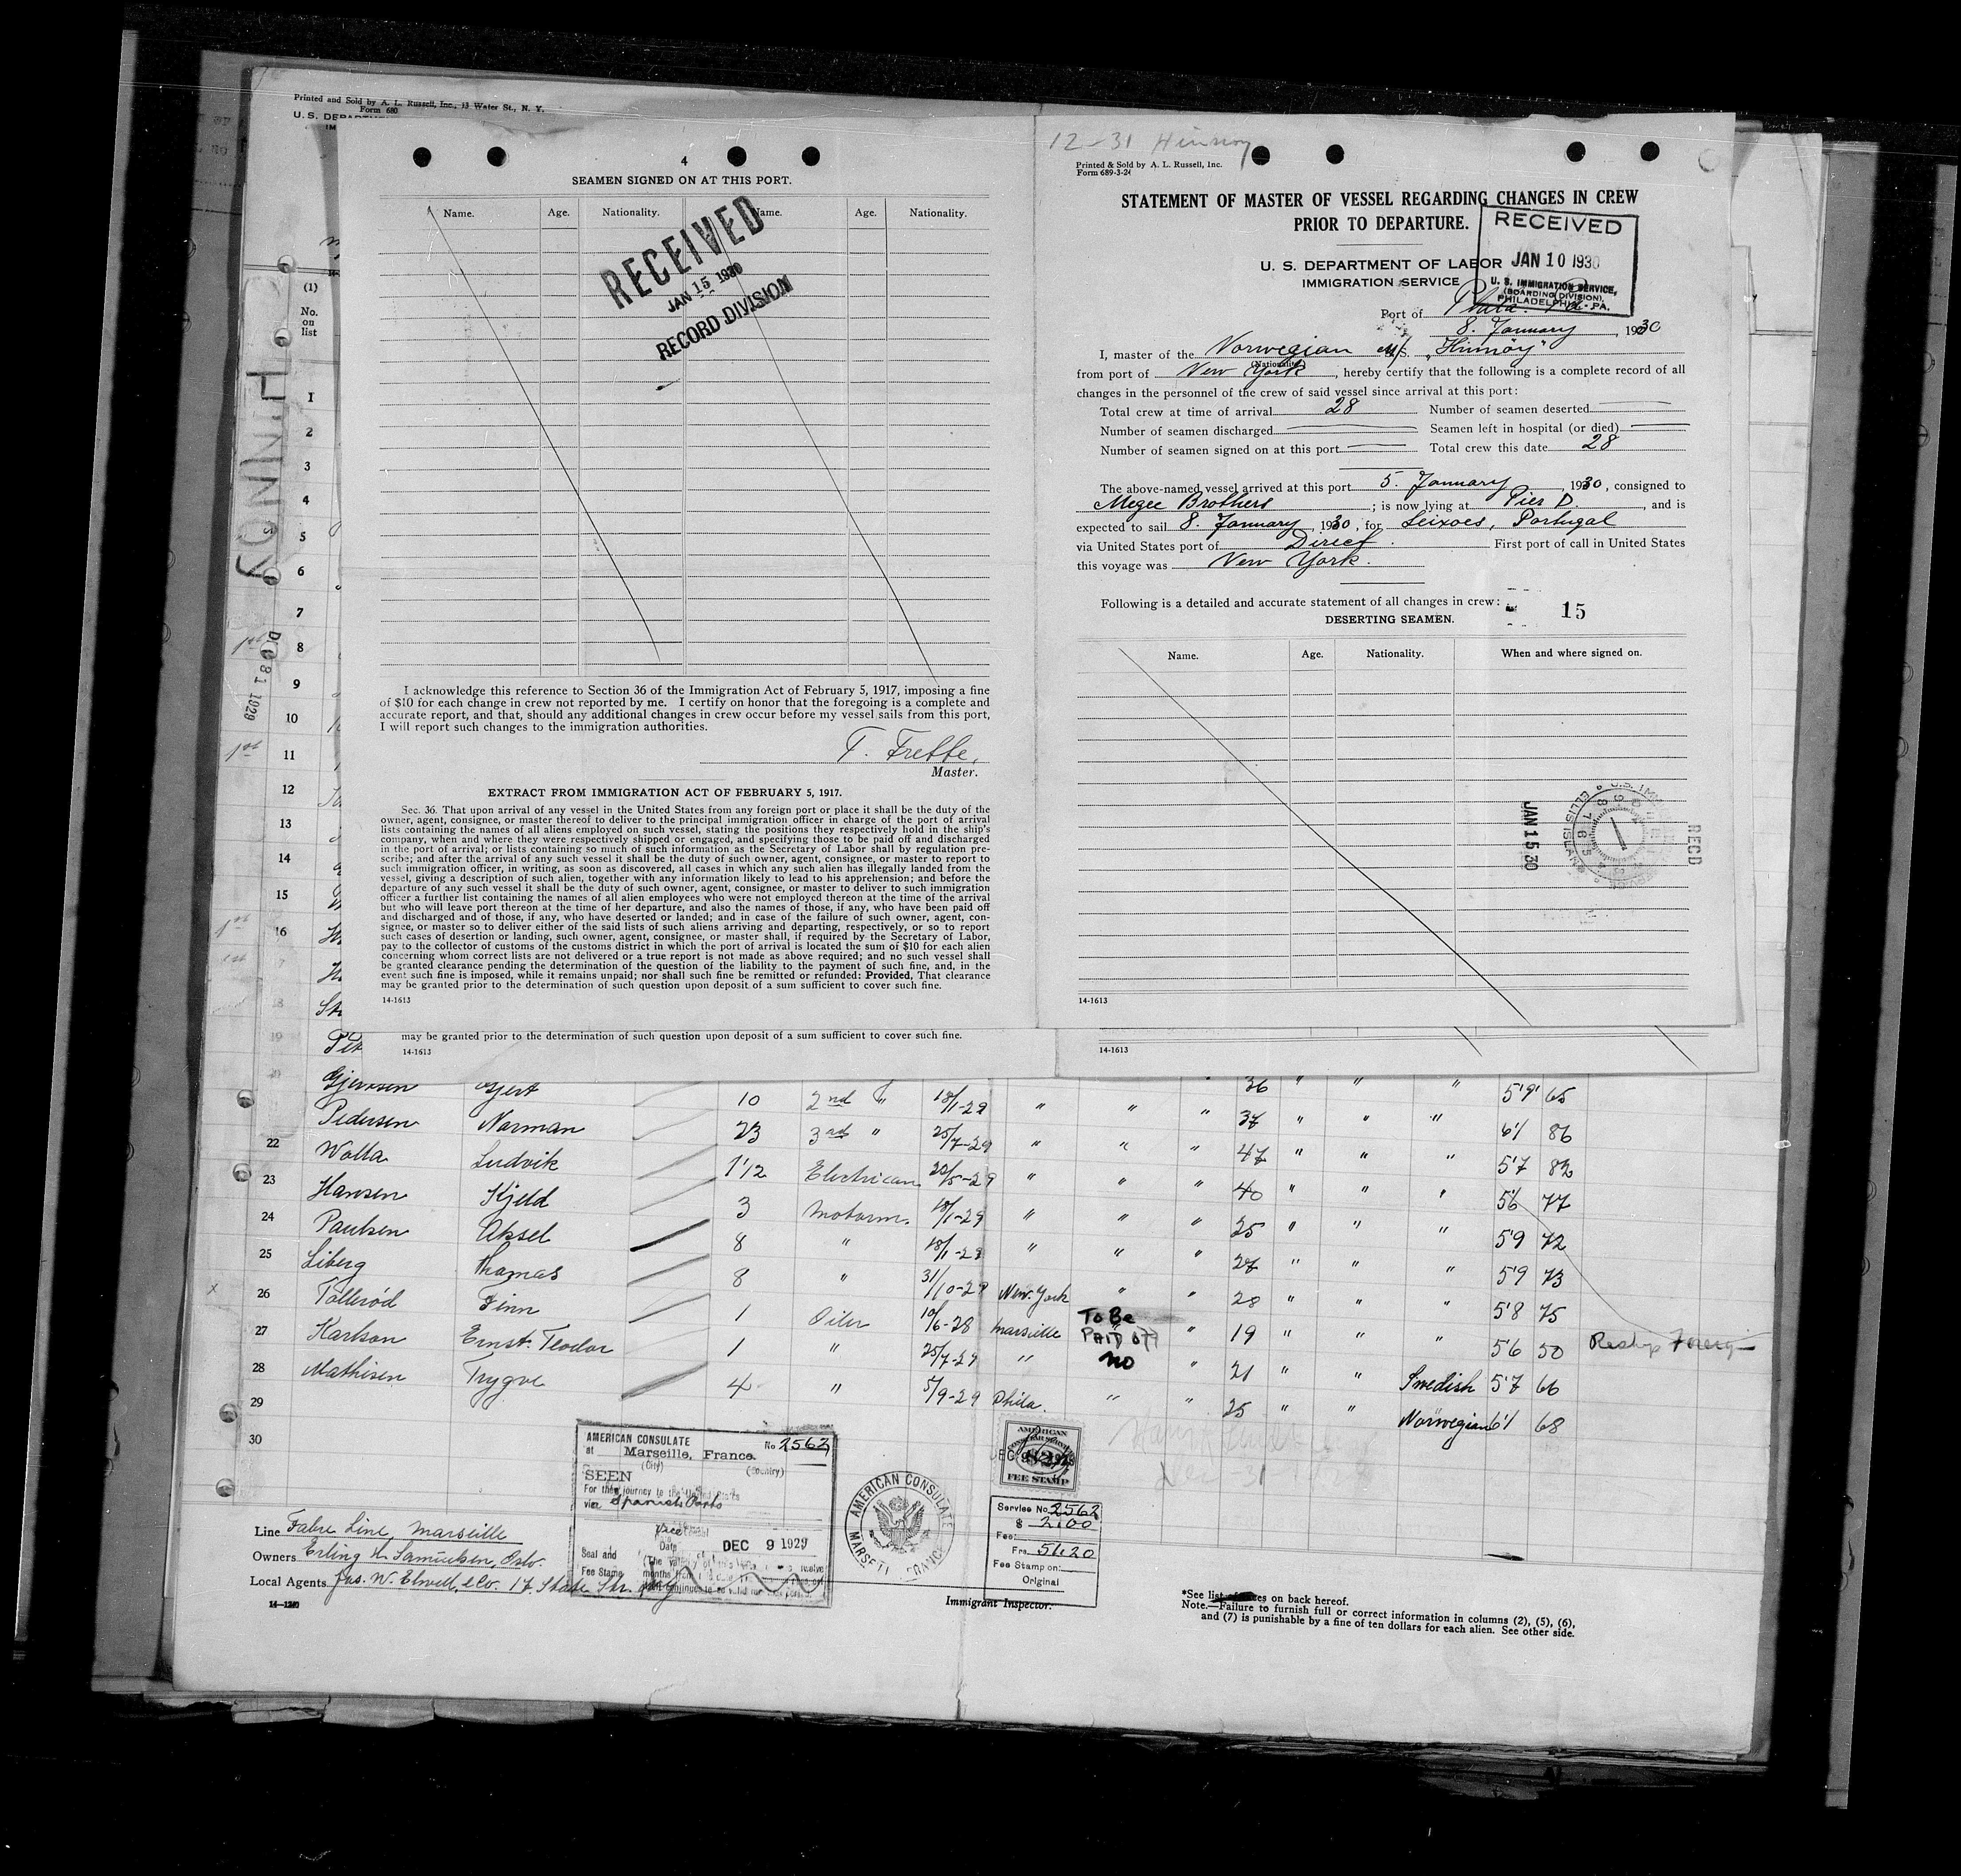 Printed and Sold by A. L. Russell, Inc., 13 Water St., N. Y.
Form 680
U. S. DEPARTMENT
(1)
No.
on
list
HINNOY
DEC 31 1929
1
2
3
4
5
6
7
8
9
10
11
12
13
14
15
16
4
SEAMEN SIGNED ON AT THIS PORT.
Name. Age. Nationality. Name. Age. Nationality.
RECEIVED
JAN 15 1930
RECORD DIVISION
I acknowledge this reference to Section 36 of the Immigration Act of February 5, 1917, imposing a fine
of $10 for each change in crew not reported by me. I certify on honor that the foregoing is a complete and
accurate report, and that, should any additional changes in crew occur before my vessel sails from this port,
I will report such changes to the immigration authorities.
T. Frette,
Master.
EXTRACT FROM IMMIGRATION ACT OF FEBRUARY 5, 1917.
Sec. 36. That upon arrival of any vessel in the United States from any foreign port or place it shall be the duty of the
owner, agent, consignee, or master thereof to deliver to the principal immigration officer in charge of the port of arrival
lists containing the names of all aliens employed on such vessel, stating the positions they respectively hold in the ship's
company, when and where they were respectively shipped or engaged, and specifying those to be paid off and discharged
in the port of arrival; or lists containing so much of such information as the Secretary of Labor shall by regulation pre-
scribe; and after the arrival of any such vessel it shall be the duty of such owner, agent, consignee, or master to report to
such immigration officer, in writing, as soon as discovered, all cases in which any such alien has illegally landed from the
vessel, giving a description of such alien, together with any information likely to lead to his apprehension; and before the
departure of any such vessel it shall be the duty of such owner, agent, consignee, or master to deliver to such immigration
officer a further list containing the names of all alien employees who were not employed thereon at the time of the arrival
but who will leave port thereon at the time of her departure, and also the names of those, if any, who have been paid off
and discharged and of those, if any, who have deserted or landed; and in case of the failure of such owner, agent, con-
signee, or master so to deliver either of the said lists of such aliens arriving and departing, respectively, or so to report
such cases of desertion or landing, such owner, agent, consignee, or master shall, if required by the Secretary of Labor,
pay to the collector of customs of the customs district in which the port of arrival is located the sum of $10 for each alien
concerning whom correct lists are not delivered or a true report is not made as above required; and no such vessel shall
be granted clearance pending the determination of the question of the liability to the payment of such fine, and, in the
event such fine is imposed, while it remains unpaid; nor shall such fine be remitted or refunded: Provided, That clearance
may be granted prior to the determination of such question upon deposit of a sum sufficient to cover such fine.
14-1613
12-31 Hinnoy
Printed & Sold by A. L. Russell, Inc.
Form 689-3-24
STATEMENT OF MASTER OF VESSEL REGARDING CHANGES IN CREW
PRIOR TO DEPARTURE.
RECEIVED
JAN 10 1930
U. S. IMMIGRATION SERVICE,
(BOARDING DIVISION),
PHILADELPHIA, PA.
U. S. DEPARTMENT OF LABOR
IMMIGRATION SERVICE
Port of Phila. Pa.
8. January, 1930
I, master of the Norwegian M/S. "Hinnöy"
(Nationality)
from port of New York, hereby certify that the following is a complete record of all
changes in the personnel of the crew of said vessel since arrival at this port:
Total crew at time of arrival 28 Number of seamen deserted
Number of seamen discharged Seamen left in hospital (or died)
Number of seamen signed on at this port Total crew this date 28
The above-named vessel arrived at this port 5. January, 1930, consigned to
Megee Brothers; is now lying at Pier D., and is
expected to sail 8. January, 1930, for Leixoes, Portugal
via United States port of Direct. First port of call in United States
this voyage was New York.
Following is a detailed and accurate statement of all changes in crew: 15
DESERTING SEAMEN.
Name. Age. Nationality. When and where signed on.
JAN 15 30
ELLIS ISLAND
RECD
14-1613
may be granted prior to the determination of such question upon deposit of a sum sufficient to cover such fine.
14-1613
14-1613
Gjertsen Gjert 10 2nd " 18/1-29 " " " 36 " " " 5'9 65
Pedersen Norman 23 3rd " 25/7-29 " " " 37 " " " 6'1 86
22 Wolla Ludvik 1 1/2 Electrican 20/5-29 " " " 47 " " " 5'7 82
23 Hansen Kjeld 3 Motorm. 18/1-29 " " " 40 " " " 5'6 77
24 Paulsen Aksel 8 " 18/1-29 " " " 25 " " " 5'9 72
25 Liberg Thomas 8 " 31/10-29 New York " " 27 " " " 5'9 73
26 Tolleröd Finn 1 Oiler 10/6-28 Marseille To Be PAID Off " 28 " " " 5'8 75
27 Karlson Ernst Teodor 1 " 25/7-29 " no " 19 " " " 5'6 50 Reship Foreign
28 Mathisen Trygve 4 " 5/9-29 Phila. " " 21 " " Swedish 5'7 66
29 25 " " Norwegian 6'1 68
30
AMERICAN CONSULATE No 2562
at Marseille, France.
(City) (Country)
SEEN
For the journey to the United States
via Spanish Ports
Vice Consul
Date DEC 9 1929
Seal and
Fee Stamp
AMERICAN CONSULATE
MARSEILLE, FRANCE
AMERICAN
CONSULAR SERVICE
$2
FEE STAMP
DEC 9 1929
Service No. 2562
$ 2.00
Fee:
Frs. 51.20
Fee Stamp on:
Original
Dec-31
Line Fabre Line, Marseille
Owners Erling H. Samuelsen, Oslo.
Local Agents Jas. W. Elwell, & Co. 17 State Str. NY
14-1240
Immigrant Inspector.
*See list of races on back hereof.
Note.—Failure to furnish full or correct information in columns (2), (5), (6),
and (7) is punishable by a fine of ten dollars for each alien. See other side.